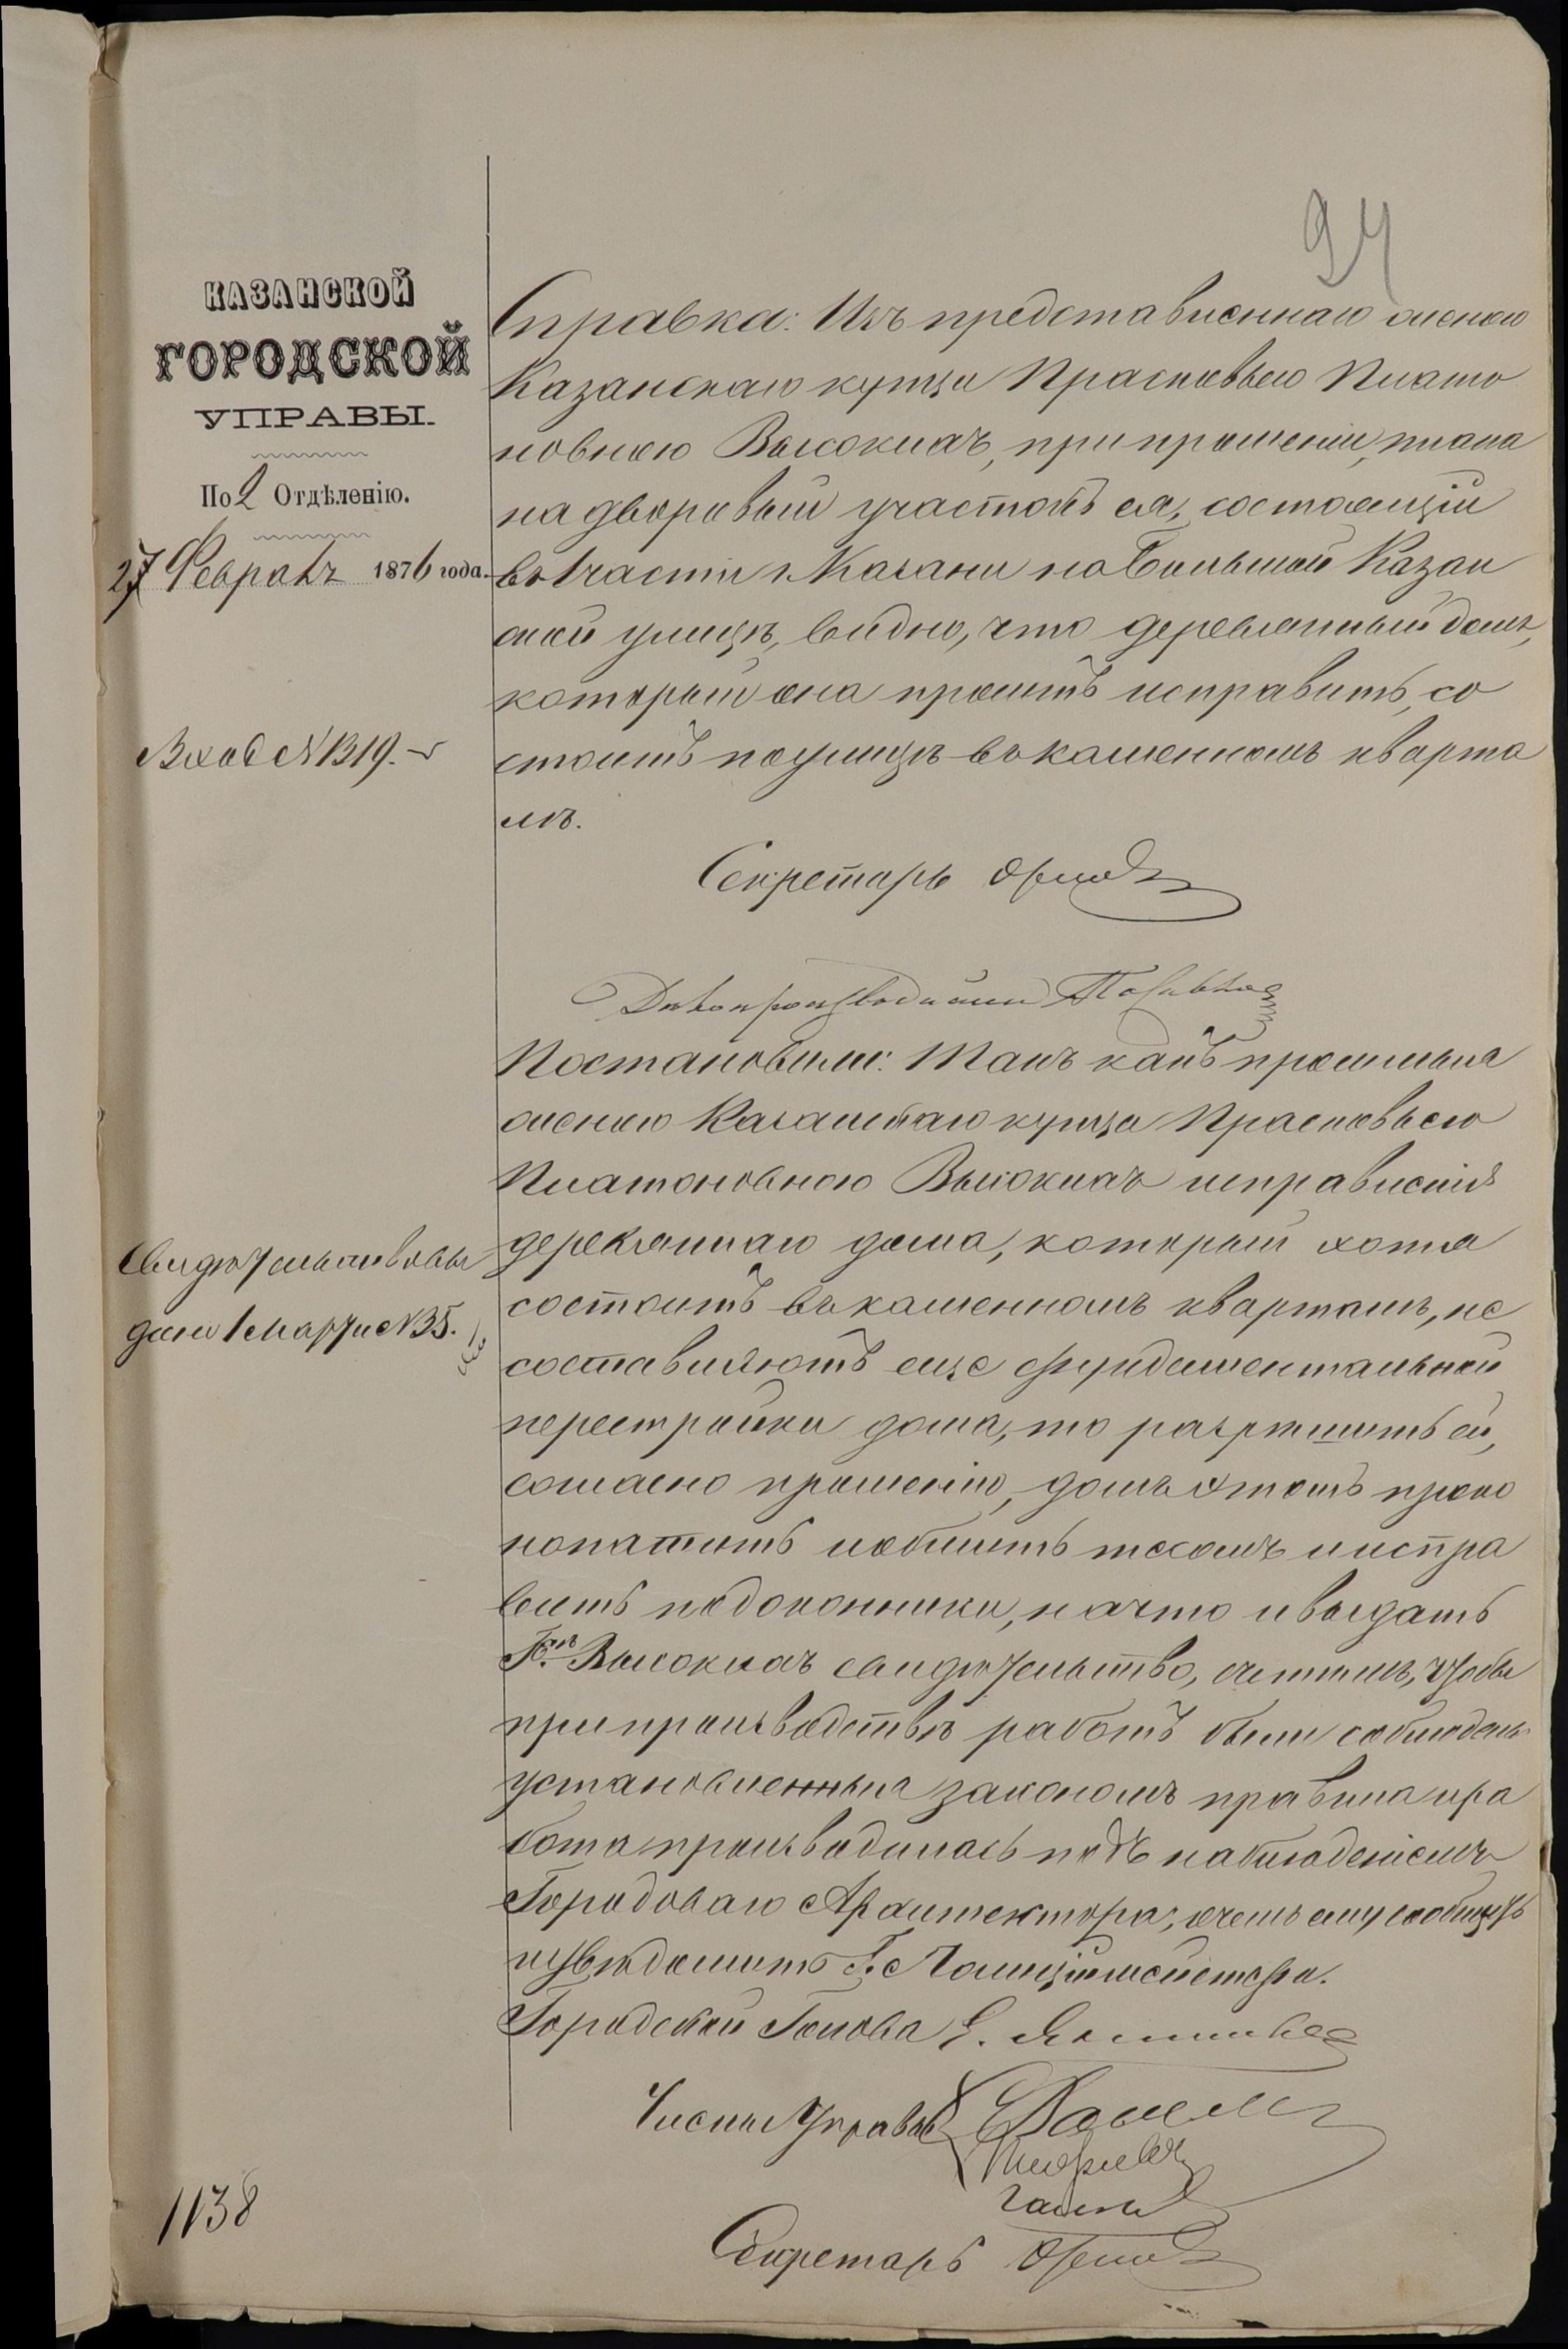 94
КАЗАНСКОЙ
ГОРОДСКОЙ
УПРАВЫ.
По 2 Отдѣленію.
27 Февраля 1876 года.
Вход. № 1319.
Справка: Изъ представленнаго женою
Казанскаго купца Прасковьею Плато
новною Высоклячъ, при прошеніи, плана
на дворовый участокъ ея, состоящій
въ 1 части г. Казани на Большой Казан
ской улицѣ, видно, что деревянный домъ,
который она проситъ исправить, со
стоитъ по улицѣ въ каменномъ кварта
лѣ.
Секретарь Орловъ
Дѣлопроизводитель
Постановили: Такъ какъ просимыя
женою Казанскаго купца Прасковьею
Платоновною Высоклячъ исправленія
деревяннаго дома, который хотя
состоитъ въ каменномъ кварталѣ, не
составляютъ еще фундаментальной
перестройки дома, то разрѣшить ей,
согласно прошенію, домъ этотъ проко
нопатить и обшить тесомъ и испра
вить подоконники, на что и выдать
Г-жѣ Высоклячъ свидѣтельство, съ тѣмъ, чтобы
при производствѣ работъ были соблюдены
установленныя закономъ правила и ра
бота производилась подъ наблюденіемъ
Городоваго Архитектора, о чемъ ему сообщить
и увѣдомить Г. Полиціймейстера.
Свидѣтельство вы
дано 1 Марта № 35.
Городской Голова Е.
Члены Управы
Секретарь Орловъ
1138